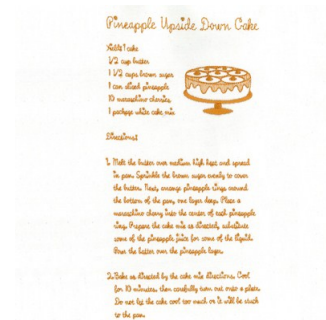 Pineapple Upside Down Cake
Yields 1 cake
1/2 cup butter
1 1/2 cups brown sugar
1 can sliced pineapple
10 maraschino cherries
1 package white cake mix
Directions:
1. Melt the butter over medium high heat and spread
in pan. Sprinkle the brown sugar evenly to cover
the butter. Next, arrange pineapple rings around
the bottom of the pan, one layer deep. Place a
maraschino cherry into the center of each pineapple
ring. Prepare the cake mix as directed, substitute
some of the pineapple juice for some of the liquid.
Pour the batter over the pineapple layer.
2. Bake as directed by the cake mix directions. Cool
for 10 minutes, then carefully turn out onto a plate.
Do not let the cake cool too much or it will be stuck
to the pan.